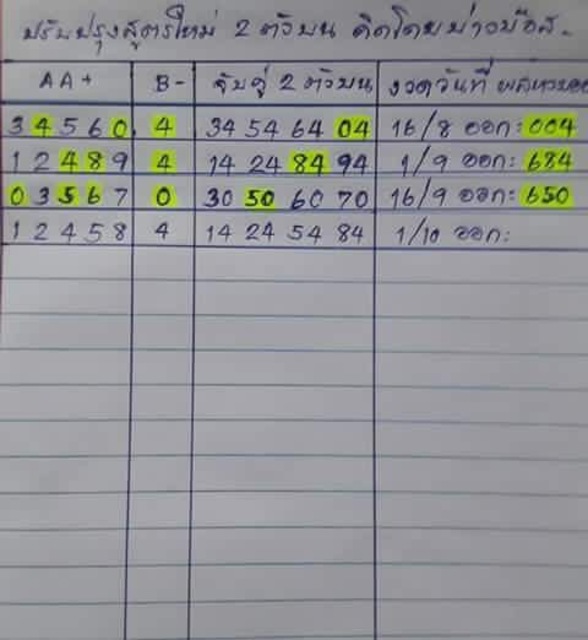 ปรับปรุงสูตรใหม่ 2 ตัวบน คิดโดยบ่าวบอส.
AA+ B- จับคู่ 2 ตัวบน งวดวันที่
3 4 5 6 0 4 34 54 64 04 16/8 ออก: 004
1 2 4 8 9 4 14 24 84 94 1/9 ออก: 684
0 3 5 6 7 0 30 50 60 70 16/9 ออก: 650
1 2 4 5 8 4 14 24 54 84 1/10 ออก: